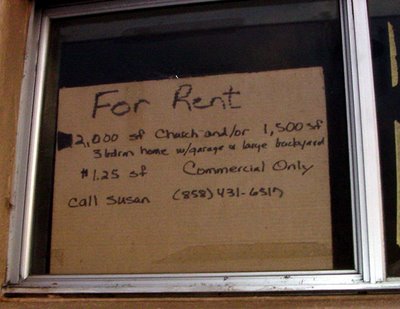 For Rent
2,000 sf Church and/or 1,500 sf
3 bdrm home w/garage & large backyard
$1.25 sf Commercial Only
call Susan (858) 431-6517